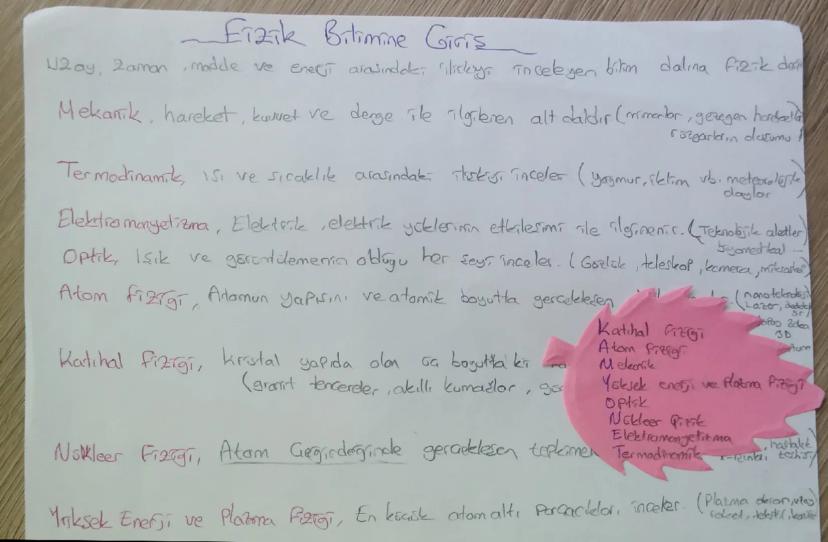 Fizik Bilimine Giriş
Uzay, zaman, madde ve enerji arasındaki ilişkiyi inceleyen bilim dalına fizik denir
Mekanik, hareket, kuvvet ve denge ile ilgilenen alt daldır (mimarlar, gezegen
rüzgarların durumu)
Termodinamik, ısı ve sıcaklık arasındaki ilişkiyi inceler (yağmur, iklim vb. meteorolojik
olaylar
Elektromanyetizma, Elektrik, elektrik yüklerinin etkileşimi ile ilgilenir. (Teknolojik aletler
biyomedikal ...
Optik, Işık ve görüntülemenin olduğu her şeyi inceler. (Gözlük, teleskop, kamera, mikroskop)
Atom fiziği, Atomun yapısını ve atomik boyutta gerçekleşen
Katıhal fiziği, kristal yapıda olan
(granit tencereler, akıllı kumaşlar,
Nükleer Fiziği, Atom Çeğirdeğinde gerçekleşen
Yüksek Enerji ve Plazma Fiziği, En küçük atom altı parçacıkları inceler. (Plazma
Katıhal Fiziği
Atom fiziği
Mekanik
Yüksek enerji ve Plazma Fiziği
Optik
Nükleer Fizik
Elektromanyetizma
Termodinamik